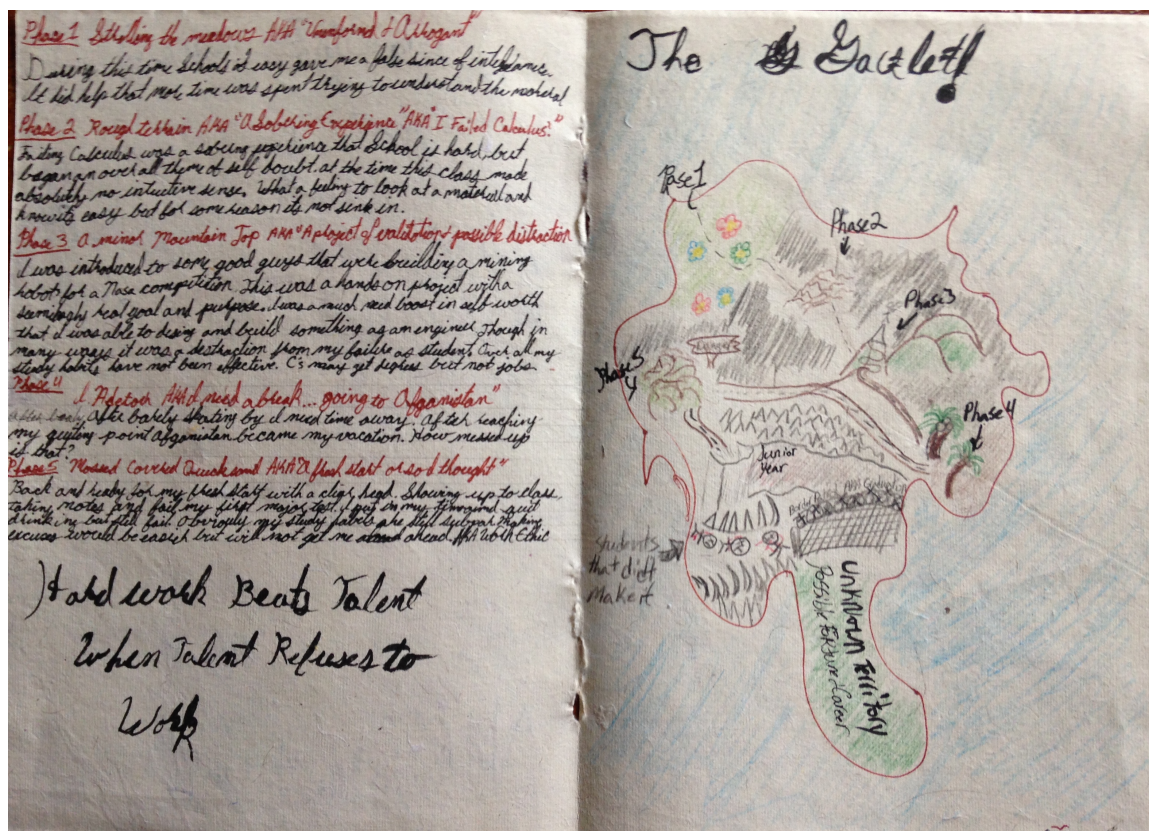 Phase 1 Strolling the meadows AKA "Uninformed & Arrogant"
During this time Schools is easy gave me a false since of
It did help that more time was spent trying to understand the material
Phase 2 Rough terrain AKA "A Sobering Experience" AKA I Failed Calculus."
Failing Calculus was a sobering experience that School is hard, but
began an over all theme of self doubt. at the time this class made
absolutely no intuitive sense. What a feeling to look at a material and
know its easy but for some reason its not sink in.
Phase 3 A minor Mountain Top AKA "A project of & possible distraction
I was introduced to some good guys that were building a mining
robot for a Nasa competition. This was a hands on project with a
seemingly real goal and purpose. I was a much need boost in self worth
that I was able to desing and build something as an engineer. Though in
many ways it was a destraction from my failure as student. Over all my
study habits have not been effective. C's may get degrees but not jobs.
Phase 4 I Adetour AKA I need a break... going to Afganistan"
After barely skating by I need time away. After reaching
my point Afganistan became my vacation. How messed up
is that?
Phase 5 Mossed Covered Quicksand AKA "A fresh start or so I thought"
Back and ready for my fresh start with a high. Showing up to class,
taking notes and fail my first major test. I put in my time and quit
drinking but still fail. Obviously my study habits are still subpar. Making
excuses would be easier but will not get me ahead. AKA Work Ethic
Hard work Beats Talent
When Talent Refuses to
Work
The Gauzlet!
Pase 1
Phase 2
Phase 3
Phase 5
4
Danger
Phase 4
Junior
Year
students
that didt
make it
Unknown Territory
Possible Future Career